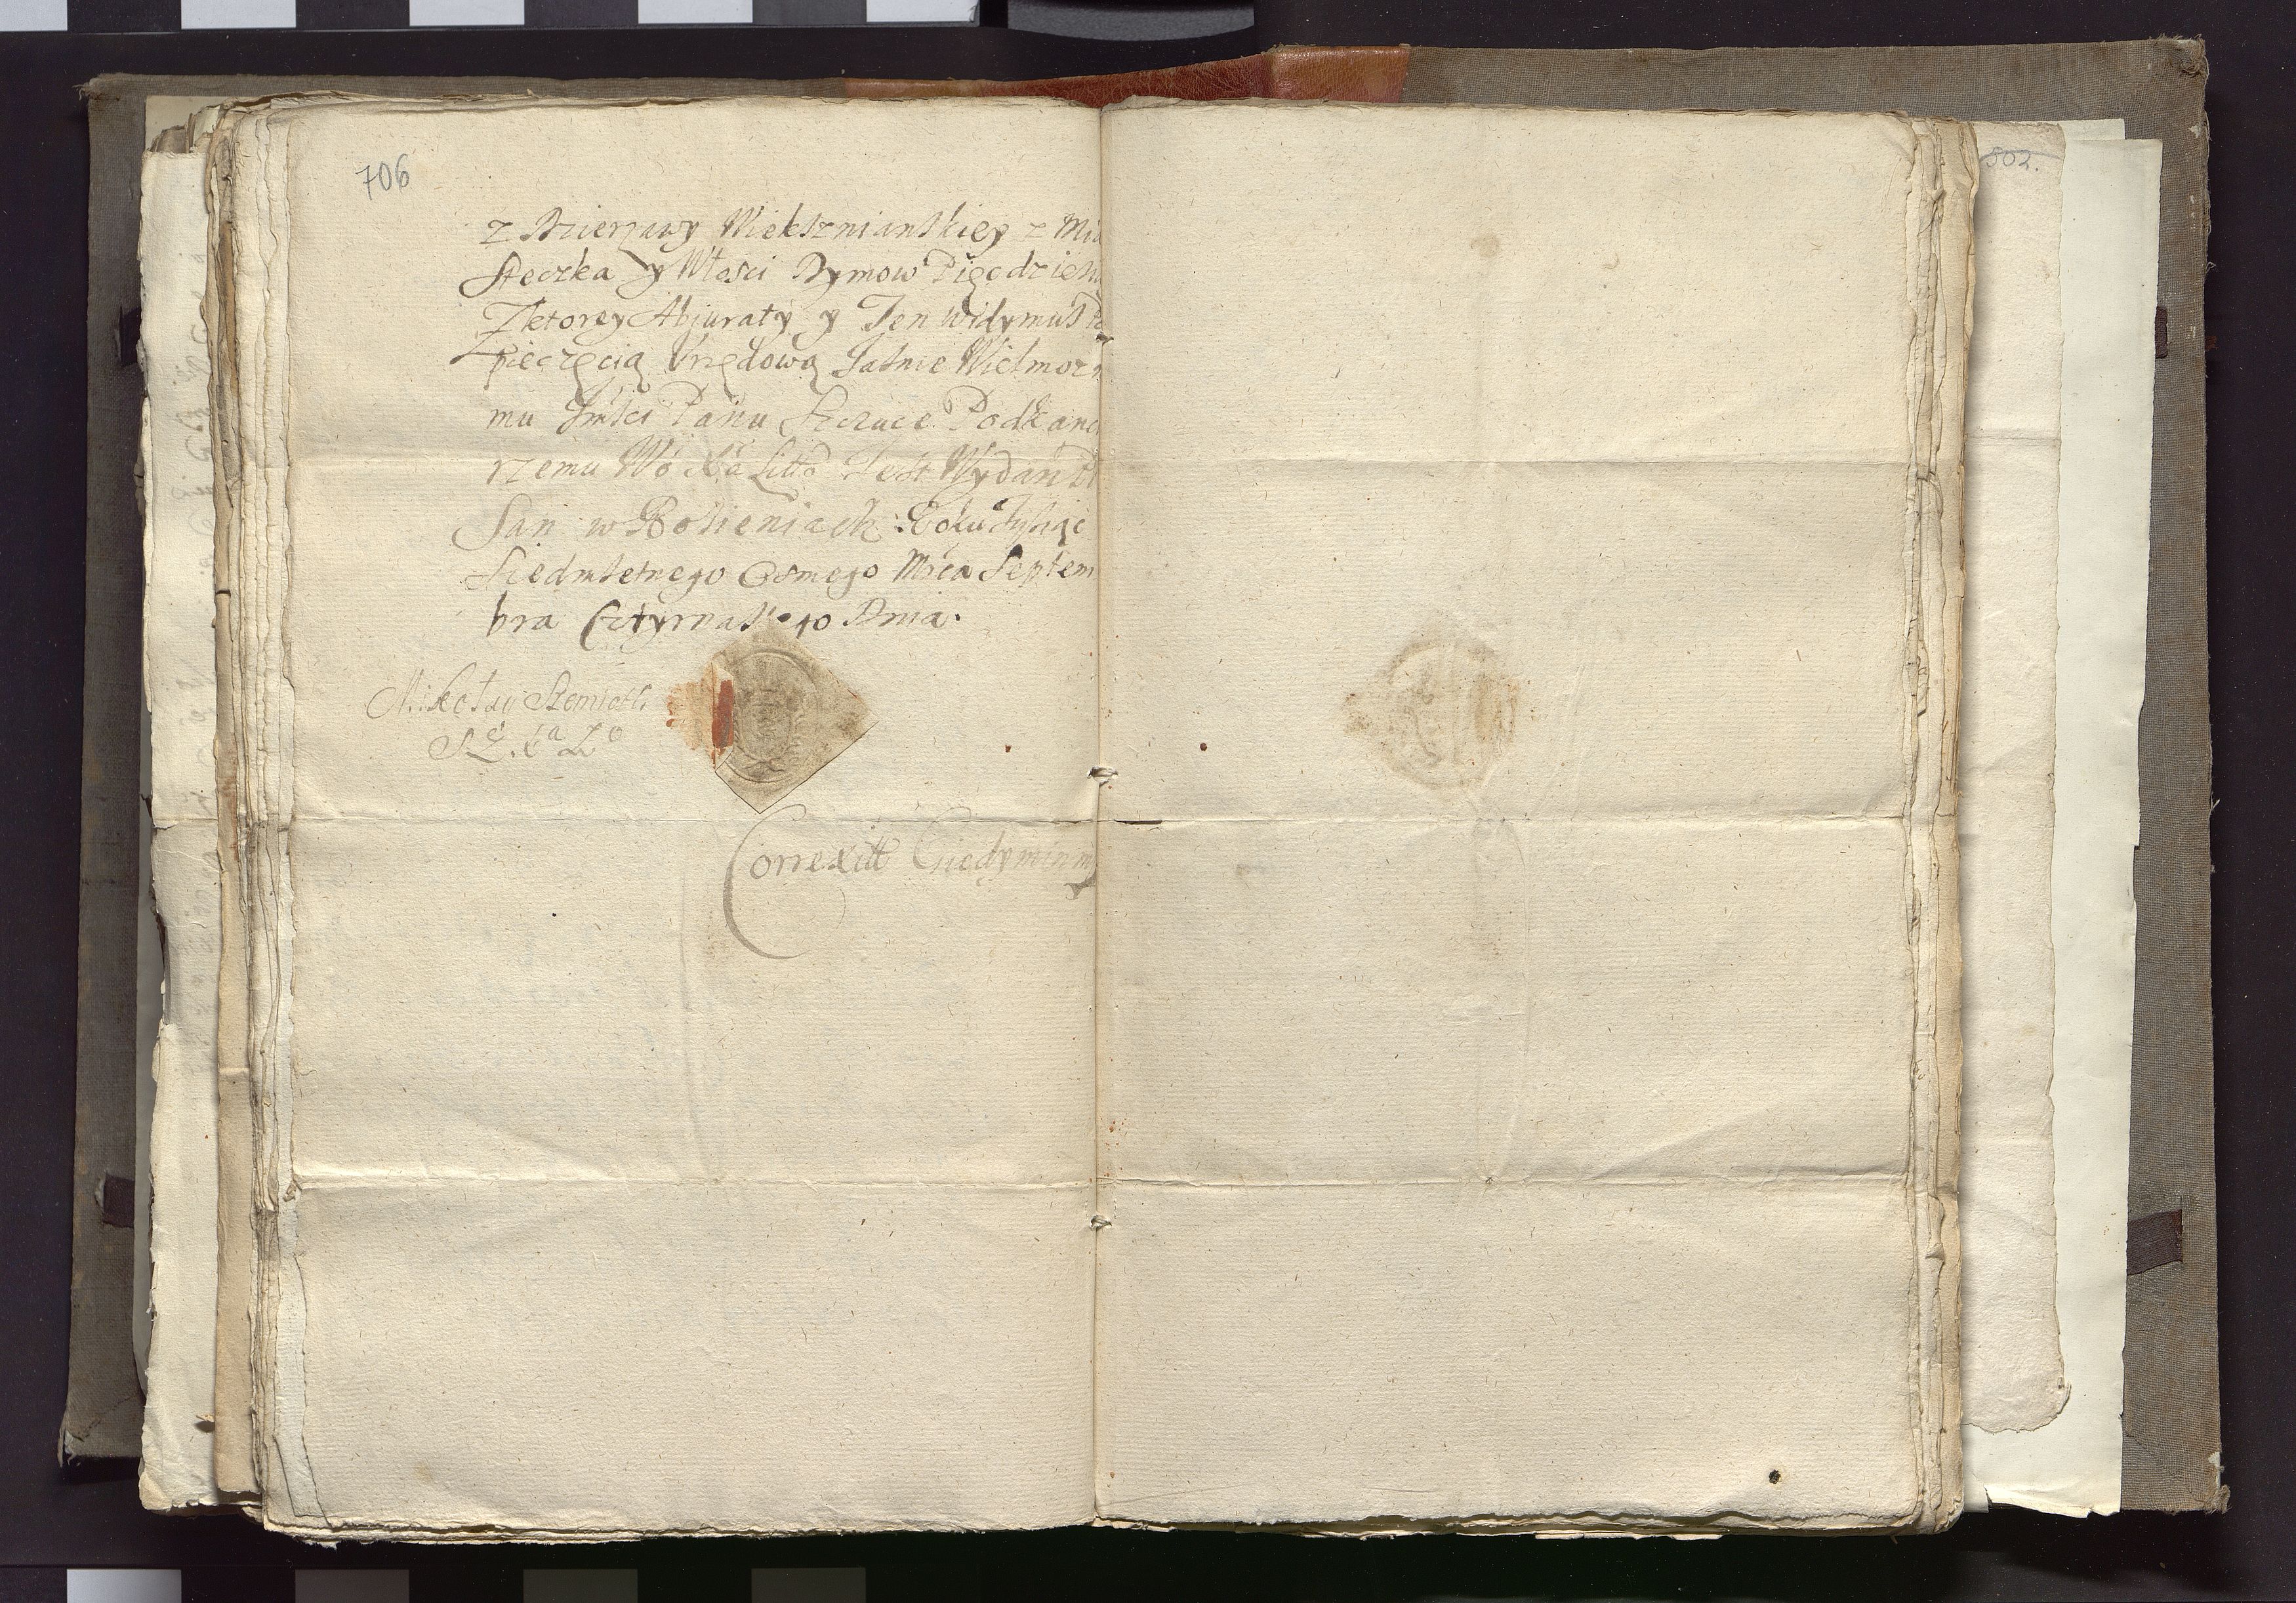 706
z Dzierzawy Wieksznianskiey z Mia
steczka y Włosci Dymow Pięcdzieśi
Z ktorey Abjuraty y Ten widymus
pieczęcią Vrzędową Jasnie Wielmozn
mu Jmści Panu Szczuce Podkanc
rzemu Wo Xa Litto Jest Wydan
San w Rosieniach Roku Tysiąc
Siedmsetnego Osmego Mca Septem
bra Cztyrnastego Dnia.
Mikołay
Correxitt Giedymin mp
502.